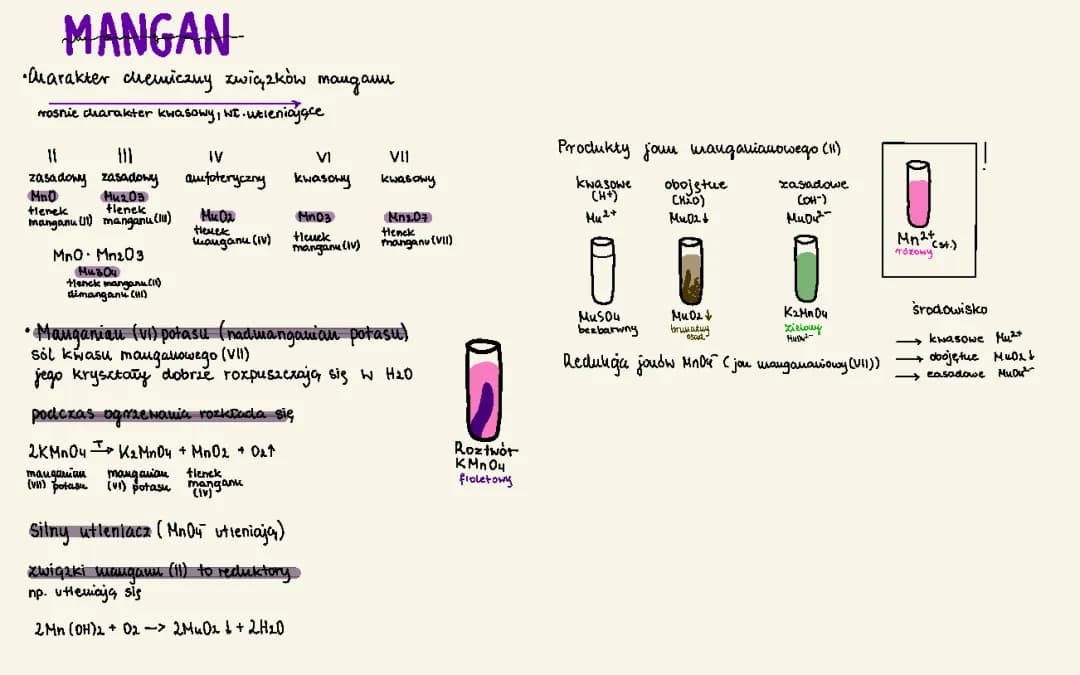 MANGAN
•Charakter chemiczny związków manganu
rośnie charakter kwasowy, wł. utleniające
II III IV VI VII
zasadowy zasadowy amfoteryczny kwasowy kwasowy
MnO Mn2O3 MnO2 MnO3 Mn2O7
tlenek manganu (II)
tlenek manganu (III)
tlenek manganu (IV)
tlenek manganu (IV)
tlenek manganu (VII)
MnO · Mn2O3
Mn3O4
tlenek manganu (II)
dimanganu (III)
• Manganian (VI) potasu (nadmanganian potasu)
sól kwasu manganowego (VII)
jego kryształy dobrze rozpuszczają się w H2O
podczas ogrzewania rozkłada się
2KMnO4 T→ K2MnO4 + MnO2 + O2↑
manganian (VII) potasu
manganian (VI) potasu
tlenek manganu (IV)
Silny utleniacz (MnO4⁻ utleniają)
związki manganu (II) to reduktory
np. utleniają się
2Mn(OH)2 + O2 —> 2MnO2↓ + 2H2O
Roztwór
KMnO4
fioletowy
Produkty jonu manganianowego (II)
kwasowe obojętne zasadowe
(H+) (H2O) (OH⁻)
Mn2+ MnO2↓ MnO4²⁻
MnSO4
bezbarwny
MnO2↓
brunatny
osad
K2MnO4
zielony
MnO4²⁻
Redukcja jonów MnO4⁻ (jon manganianowy (VII))
!
Mn2+ (st.)
różowy
środowisko
→ kwasowe Mn2+
→ obojętne MnO2↓
→ zasadowe MnO4²⁻